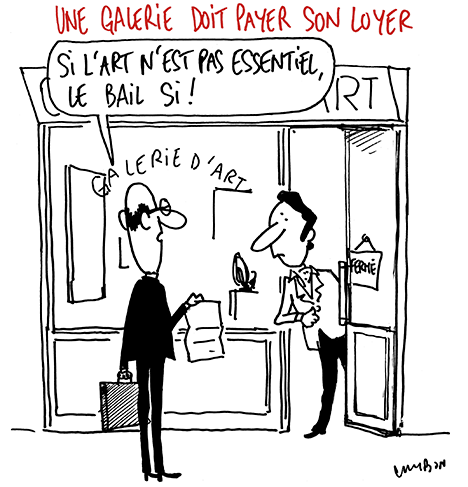 UNE GALERIE DOIT PAYER SON LOYER
SI L'ART N'EST PAS ESSENTIEL,
LE BAIL SI !
ART
GALERIE D'ART
FERMÉ